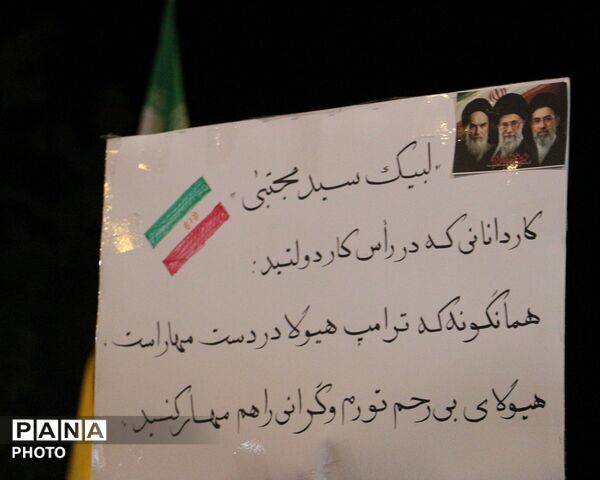 "لبیک سید مجتبیٰ"
کاردانانی که در رأس کار دولتید:
همانگونه که ترامپ هیولا در دست مهار است،
هیولای بی رحم تورم و گرانی را هم مهار کنید.
PANA
PHOTO